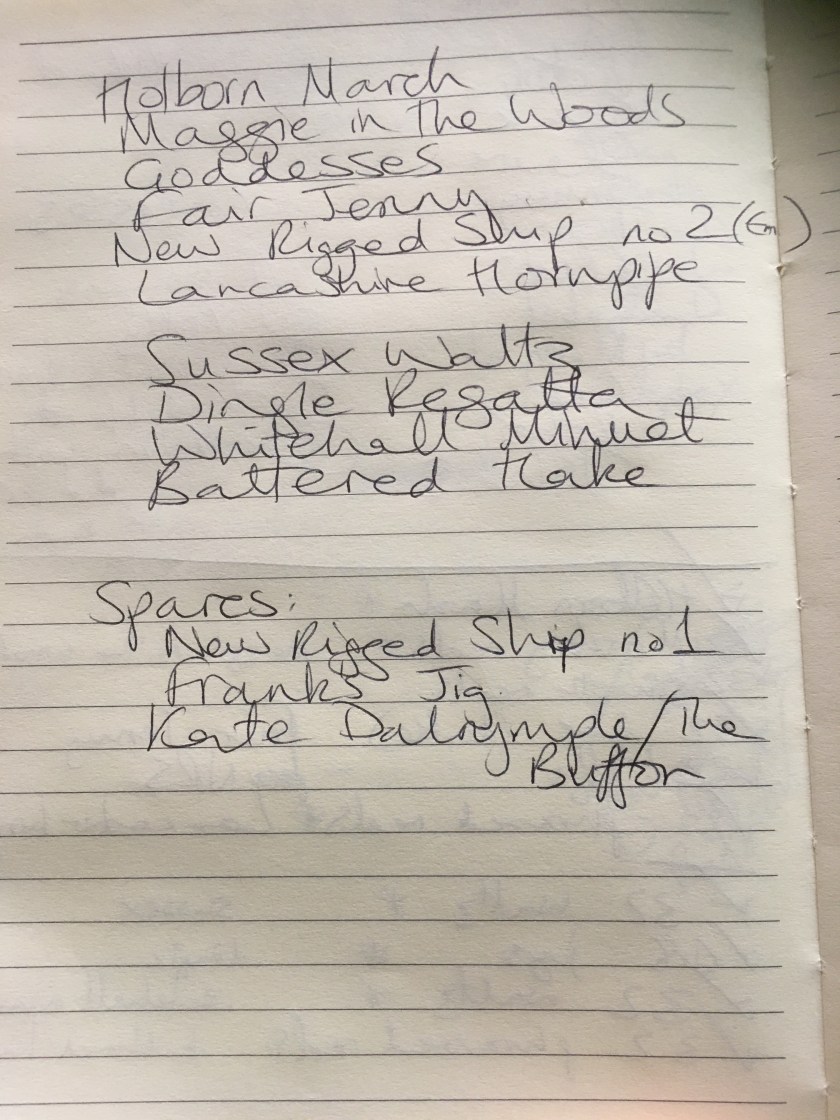 Holborn March
Maggie in The Woods
Goddesses
Fair Jenny
New Rigged Ship no 2 (Em)
Lancashire Hornpipe
Sussex Waltz
Dingle Regatta
Whitehall Minuet
Battered Hake
Spares:
New Rigged Ship no 1
Franks Jig
Kate Dalrymple/The
Buffon